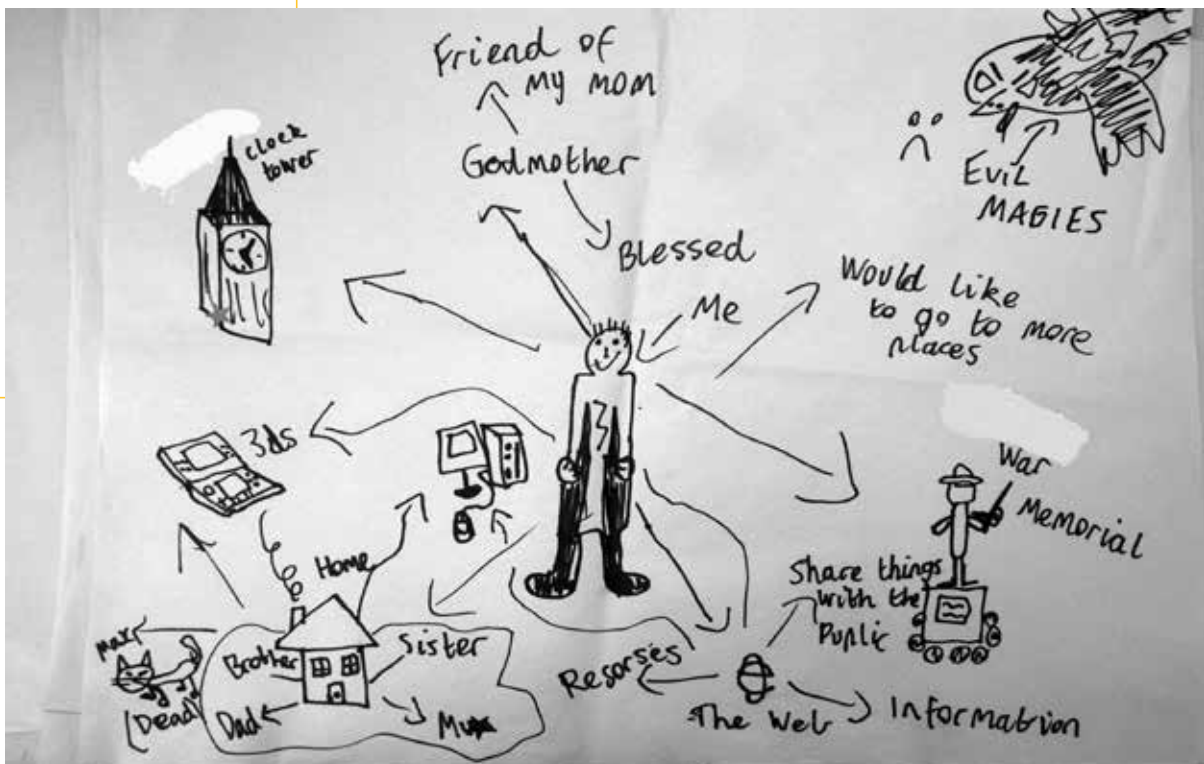 Friend of
My MOM
Godmother
Blessed
Me
clock
tower
EVIL
MAGIES
Would like
to go to more
places
3ds
War
Memorial
Home
Share things
with the
Public
max
(Dead)
Brother
Sister
Dad
Resorses
The Web
Information